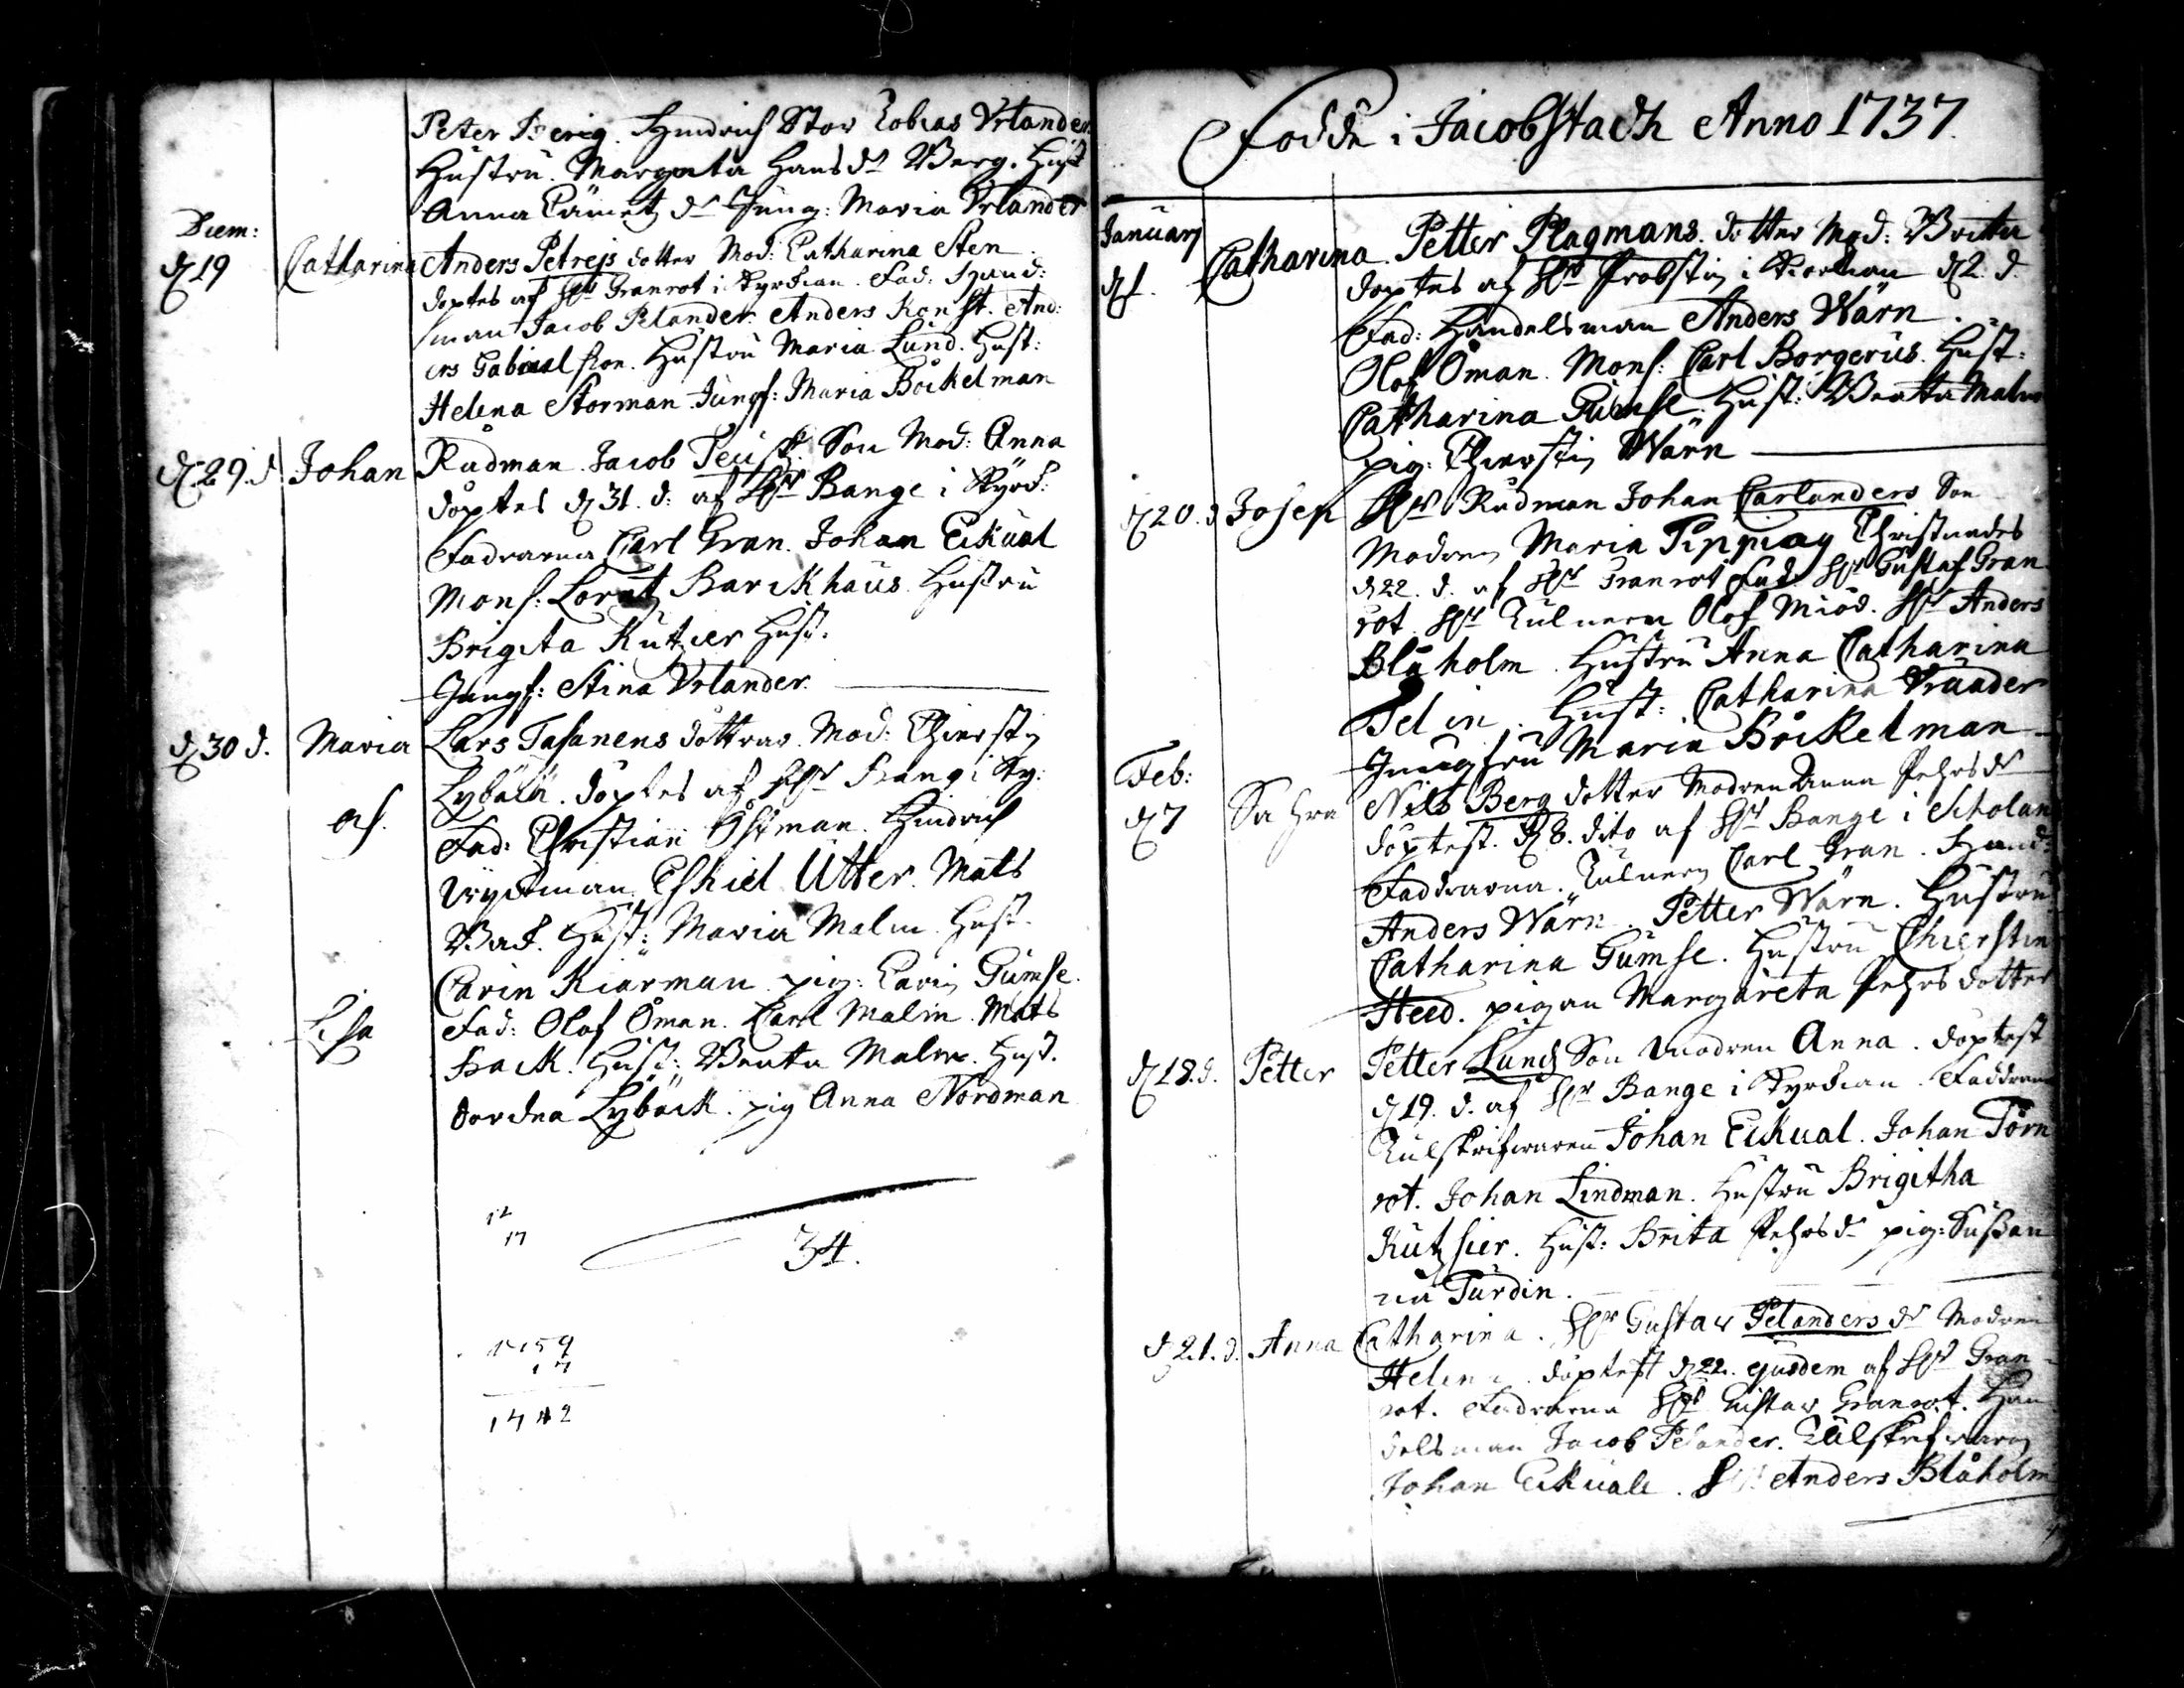 Peter Berig. Hindrich Stor Tobias Vrlander
Hustru. Margreta Hansdr Berg. Hust
Anna dr Jung: Maria Vrlander
Diem:
d 19 Catharina Anders Petrejs dotter Mod: Catharina Sten
döptes af Hr Granrot i Kyrckian. Fad: Hand:
man Jacob Pelander. Anders Konst. And:
ers Gabriel son. Hustru Maria Lund. Hust:
Helena Storman Jungf: Maria Böckelman
d 29. d Johan Rådman Jacob Teusk Son Mod: Anna
döptes d 31. d: af Hr Bange i Kyrck:
Faddrarna Carl Gran. Johan Eckual
Mons: Lorentz Barckhaus. Hustru
Brigita Kutzier Hust.
Jungf: Stina Vrlander.
d 30 d. Maria Lars Tasanens döttrar. Mod: Chierstin
Lybäck. döptes af Hr Bang i Ky:
och. Fad: Christian Öhman. Hindrich
Wijckman Eskiel Utter. Mats
Back. Hust: Maria Malm. Hust.
Carin Kiärman pig: Carin Gumse.
Lisa Fad: Olof Öman. Carl Malm. Mats
Back. Hust: Beata Malm. Hust.
Dordea Lybäck. pig Anna Nordman
12
17
34.
1759
17
1742
Födde i Jacobstadh Anno 1737.
January
d 1. Catharina Petter Plagmans dotter Mod: Brita
döptes af Hr Probsten i Kiorkian d 2. d.
Fad: Handelsman Anders Wärn.
Olof Öman. Mons: Carl Borgerus. Hust:
Catharina Gumse. Hust: Beata Malm
pig: Chierstin Wärn
d 20. d Josep Hr Rådman Johan Carlanders Son
Modren Maria Pippiay Christnades
d 22. d. af Hr Granrot Fad: Hr Gustaf Gran
rot. Hr Tulnern Olof Miöd. Hr Anders
Blåholm. Hustru Anna Catharina
Selin. Hust: Catharina Vrlander
Jungfru Maria Böckelman
Feb:
d 7 Sahra Nils Berg dotter Modren Anna Pehrsdr
döptest. d 8. dito af Hr Bange i Scholan
Faddrarna. Tulnern Carl Gran. Hand:
Anders Wärn. Petter Wärn. Hustru
Catharina Gumse. Hustru Chierstin
Heed. pigan Margareta Pehrs dotter
d 18. d. Petter Petter Lund Son Modren Anna. döptest
d 19. d. af Hr Bange i Kyrckian. Faddrarna
Tulskrifwaren Johan Eckual. Johan Törn
rot. Johan Lindman. Hustru Brigitha
Kutzsier. Hust: Brita Pehrsdr pig: Sussan
na Turdin.
d 21. d. Anna Catharina. Hr Gustav Pelanders dr Modren
Helena. döptest d 22. ejusdem af Hr Gran
rot. Faddrarna Hr Gustav Granrot. Han
delsman Jacob Pelander. Tulskrifwaren
Johan Eckuale. Hr Anders Blåholm